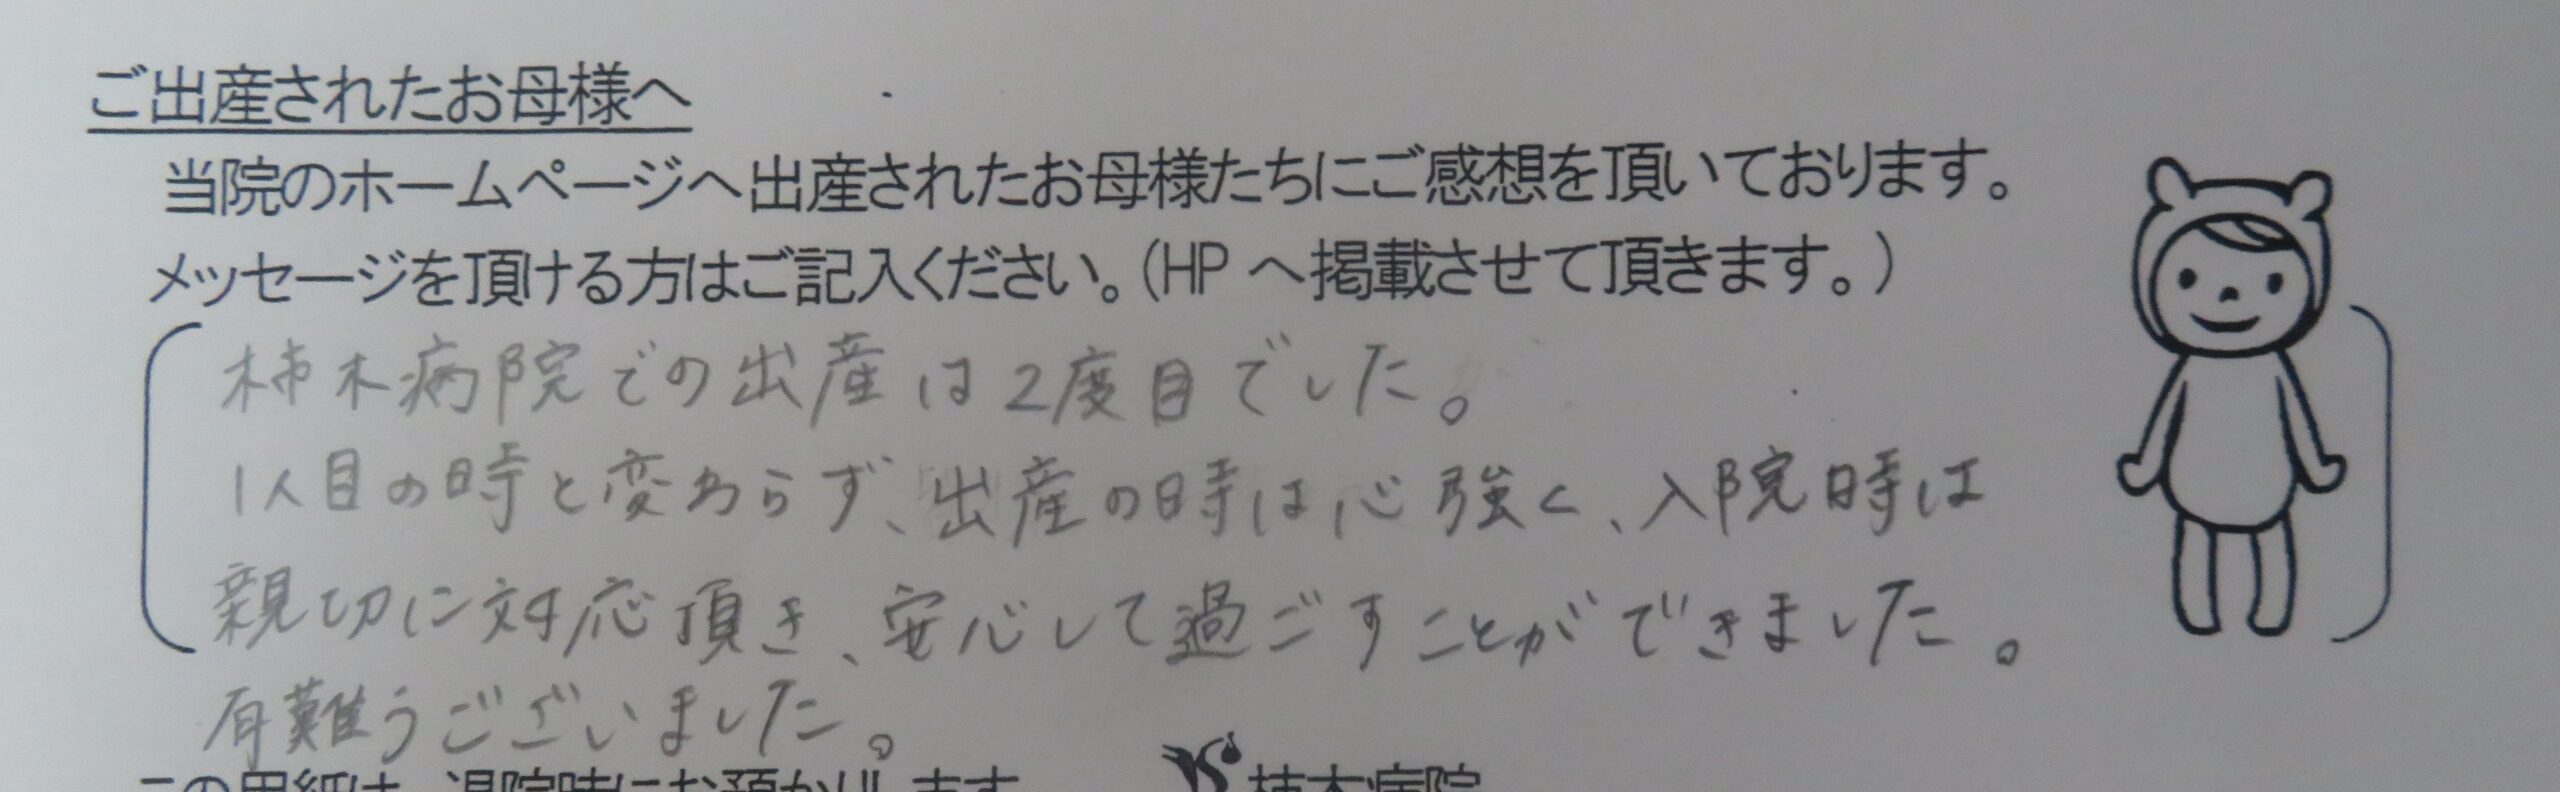 ご出産されたお母様へ
当院のホームページへ出産されたお母様たちにご感想を頂いております。
メッセージを頂ける方はご記入ください。(HP へ掲載させて頂きます。)
柿木病院での出産は2度目でした。
1人目の時と変わらず、出産の時は心強く、入院時は
親切に対応頂き、安心して過ごすことができました。
有難うございました。
この用紙は、退院時にお預かりします 柿木病院